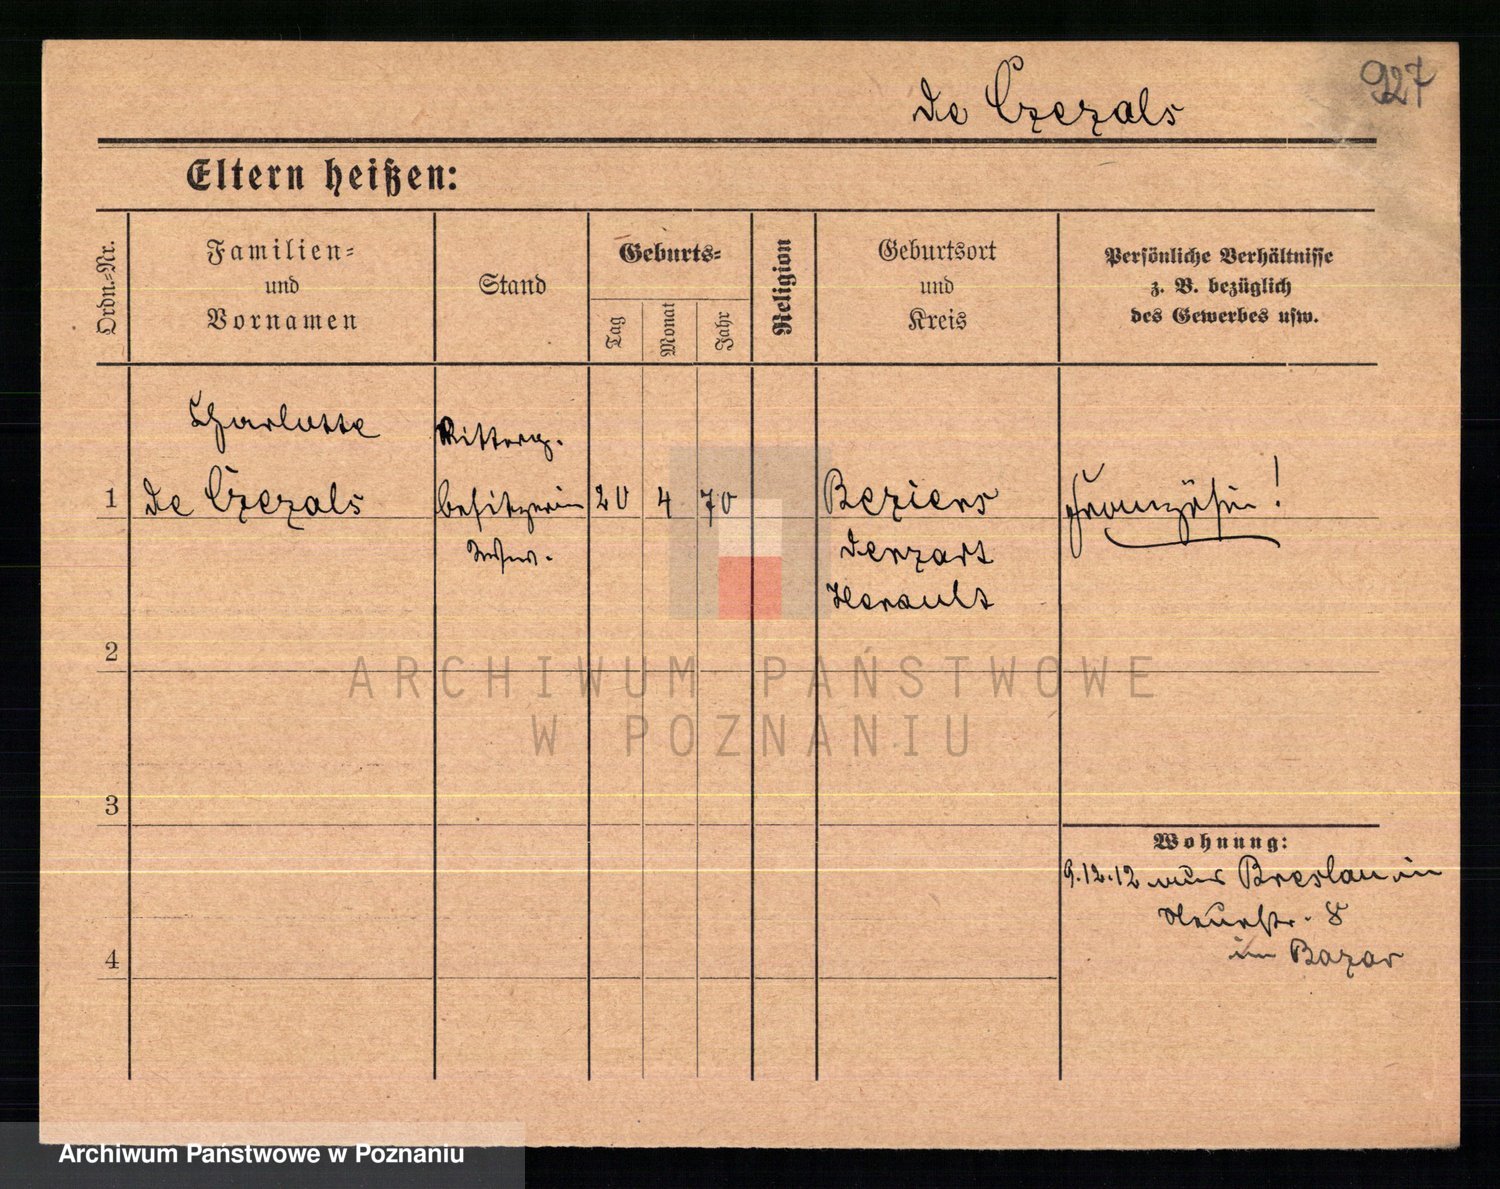 927
de Czezals
Eltern heißen:
Ordn.-Nr.
Familien-
und
Vornamen
Stand
Geburts-
Tag
Monat
Jahr
Religion
Geburtsort
und
Kreis
Persönliche Verhältnisse
z. B. bezüglich
des Gewerbes usw.
Charlotte
Ritterg.
1 de Czezals besitzerin 20 4 70 Beziers Französin!
Herault
2
ARCHIWUM PAŃSTWOWE
W POZNANIU
3
Wohnung:
9.12.12 aus Breslau in
Neuestr. 8
im Bazar
4
Archiwum Państwowe w Poznaniu